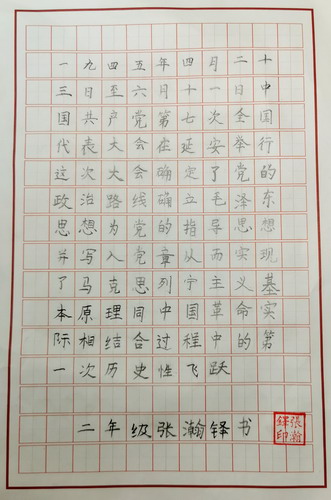 一九四五年四月二十
三日至六月十一日中
国共产党第七次全国
代表大会在延安举行
这次大会确定了党的
政治路线确立毛泽东
思想为党的指导思想
并写入党章从而实现
了马克思列宁主义基
本原理同中国革命实
际相结合过程中的第
一次历史性飞跃
二年级张瀚铎书
張瀚鐸印